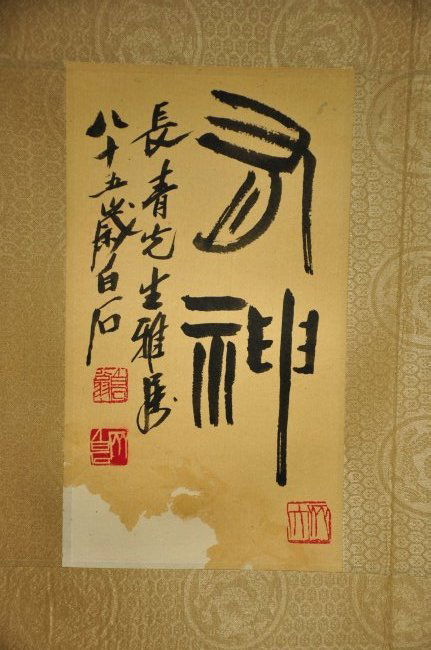 有神
長青先生雅屬
八十五歲白石